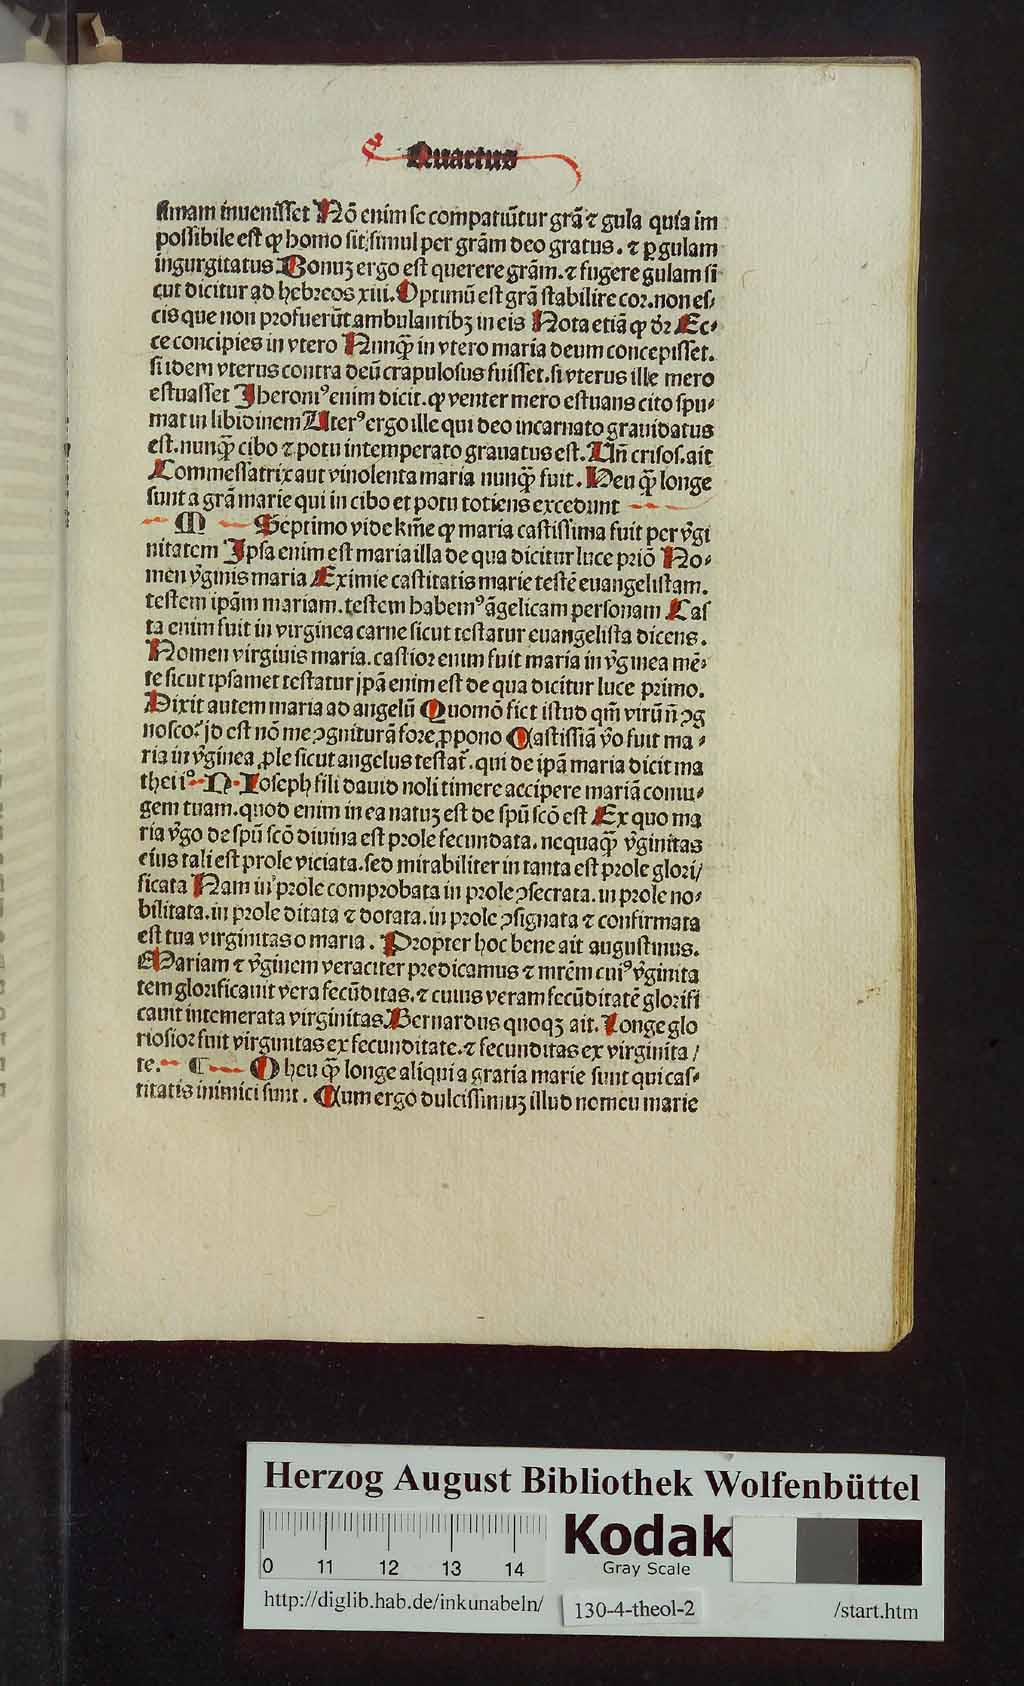 Quartus
simam inuenisset Nō enim se compatiūtur grā ⁊ gula quia im
possibile est ꝙ homo sit simul per grām deo gratus. ⁊ ꝑ gulam
ingurgitatus Bonuꝫ ergo est querere grām. ⁊ fugere gulam si
cut dicitur ad hebreos xiii. Optimū est grā stabilire cor. non es⸗
cis que non profuerūt ambulantibꝫ in eis Nota etiā ꝙ dr̄ Ec⸗
ce concipies in vtero Nunꝙ̄ in vtero maria deum concepisset.
si idem vterus contra deū crapulosus fuisset. si vterus ille mero
estuasset Jheroniꝰ enim dicit. ꝙ venter mero estuans cito spu⸗
mat in libidinem Uterꝰ ergo ille qui deo incarnato grauidatus
est. nunꝙ̄ cibo ⁊ potu intemperato grauatus est. Un̄ crisos. ait
Commessatrix aut vinolenta maria nunꝙ̄ fuit. Heu ꝙ̄ longe
sunt a grā marie qui in cibo et potu totiens excedunt
M Septimo vide km̄e ꝙ maria castissima fuit per ꝟgi
nitatem Ipsa enim est maria illa de qua dicitur luce priō No⸗
men ꝟginis maria Eximie castitatis marie testē euangelistam.
testem ipām mariam. testem habemꝰ āgelicam personam Cas
ta enim fuit in virginea carne sicut testatur euangelista dicens.
Nomen virgiuis maria. castior enim fuit maria in ꝟginea mē⸗
te sicut ipsamet testatur jpā enim est de qua dicitur luce primo.
Dixit autem maria ad angelū Quomō fiet istud qm̄ virū n̄ ꝯg
nosco? jd est nō me ꝯgniturā fore ꝓpono Castissiā ꝟo fuit ma⸗
ria in ꝟginea ꝓle sicut angelus testat᷑. qui de ipā maria dicit ma
thei i° N Joseph fili dauid noli timere accipere mariā coniu⸗
gem tuam. quod enim in ea natuꝫ est de spū scō est Ex quo ma
ria ꝟgo de spū scō diuina est prole fecundata. nequaꝙ̄ ꝟginitas
eius tali est prole viciata. sed mirabiliter in tanta est prole glori/
ficata Nam in prole comprobata in prole ꝯsecrata. in prole no⸗
bilitata. in prole ditata ⁊ dotata. in prole ꝯsignata ⁊ confirmata
est tua virginitas o maria. Propter hoc bene ait augustinus.
Mariam ⁊ ꝟginem veraciter predicamus ⁊ mrēm cuiꝰ ꝟginita
tem glorificauit vera fecūditas. ⁊ cuius veram fecūditatē glorifi
cauit intemerata virginitas. Bernardus quoqꝫ ait. Longe glo
riosior fuit virginitas ex fecunditate. ⁊ fecunditas ex virginita/
te. ¶ O heu ꝙ̄ longe aliqui a gratia marie sunt qui cas⸗
titatis inimici sunt. Cum ergo dulcissimuꝫ illud nomeu marie
Herzog August Bibliothek Wolfenbüttel
0 11 12 13 14
Kodak
Gray Scale
http://diglib.hab.de/inkunabeln/ 130-4-theol-2 /start.htm